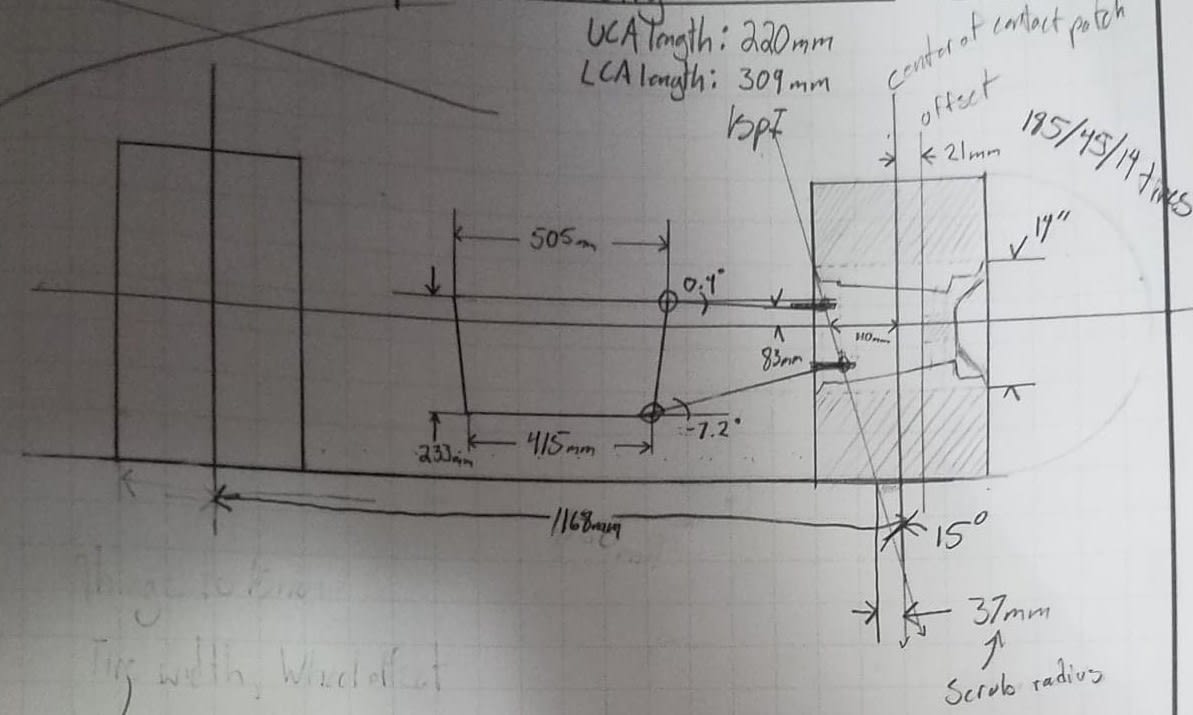 UCA length: 220mm
LCA length: 309mm
center of contact patch
offset
KPI
21mm
185/45/14 tires
14"
505mm
0.4°
110mm
83mm
-7.2°
415mm
233mm
1168mm
15°
37mm
Scrub radius
Things to
Tire width, Wheel offset